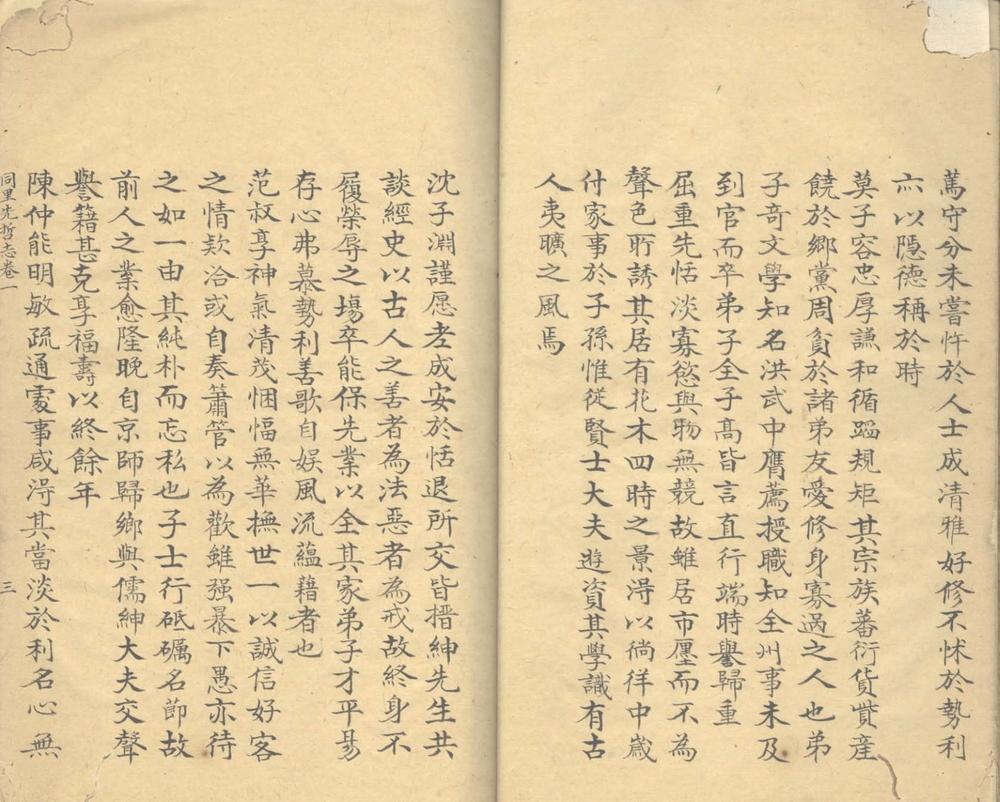 篤守分未嘗忤於人士成清雅好修不怵於勢利
亦以隱德稱於時
莫子容忠厚謙和循蹈規矩其宗族蕃衍貨貲產
饒於鄉黨周負於諸弟友愛修身寡過之人也弟
子奇文學知名洪武中膺薦授職知全州事未及
到官而卒弟子全子髙皆言直行端時譽歸重
屈重先恬淡寡慾與物無競故雖居市廛而不為
聲色所誘其居有花木四時之景淂以徜徉中歲
什家事於子孫惟從賢士大夫遊資其學識有古
人夷曠之風焉
沈子淵謹愿老成安於恬退所交皆搢紳先生共
談經史以古人之善者為法惡者為戒故終身不
履榮辱之塲卒能保先業以全其家弟子才平昜
存心弗慕勢利善歌自娱風流蘊藉者也
范叔享神氣清茂悃愊無華撫世一以誠信好客
之情欵洽或自奏簫管以為歡雖强暴下愚亦待
之如一由其純朴而忘私也子士行砥礪名節故
前人之業愈隆晚自京師歸鄉與儒紳大夫交聲
譽籍甚克享福壽以終餘年
陳仲能明敏疏通處事咸淂其當淡於利名心無
同里先哲志卷一
三